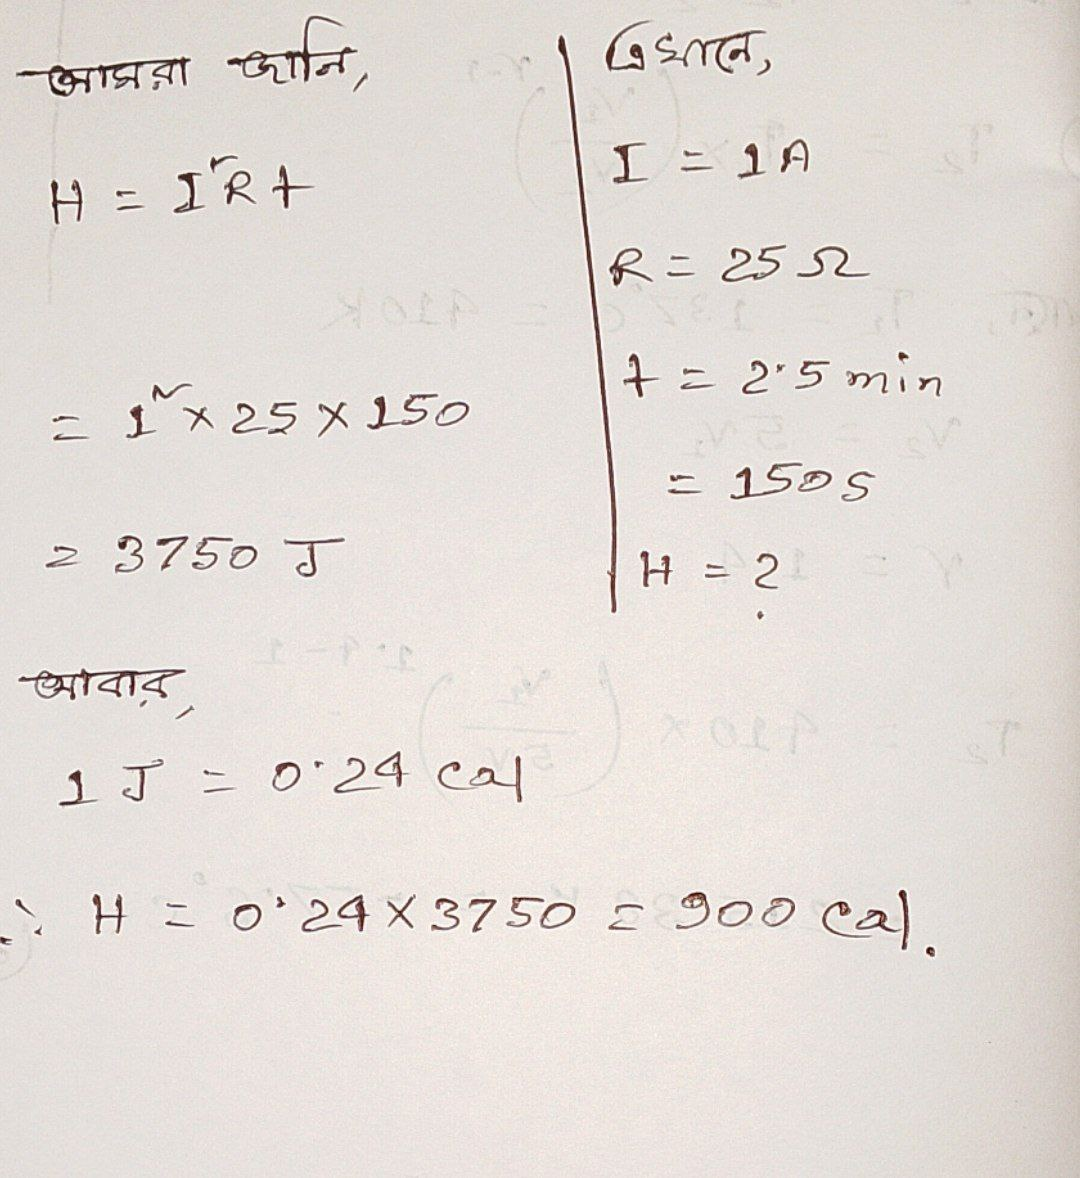 আমরা জানি,
H = I²Rt
= 1² × 25 × 150
= 3750 J
এখানে,
I = 1A
R = 25 Ω
t = 2.5 min
= 150 s
H = ?
আবার,
1 J = 0.24 cal
∴ H = 0.24 × 3750 = 900 cal.